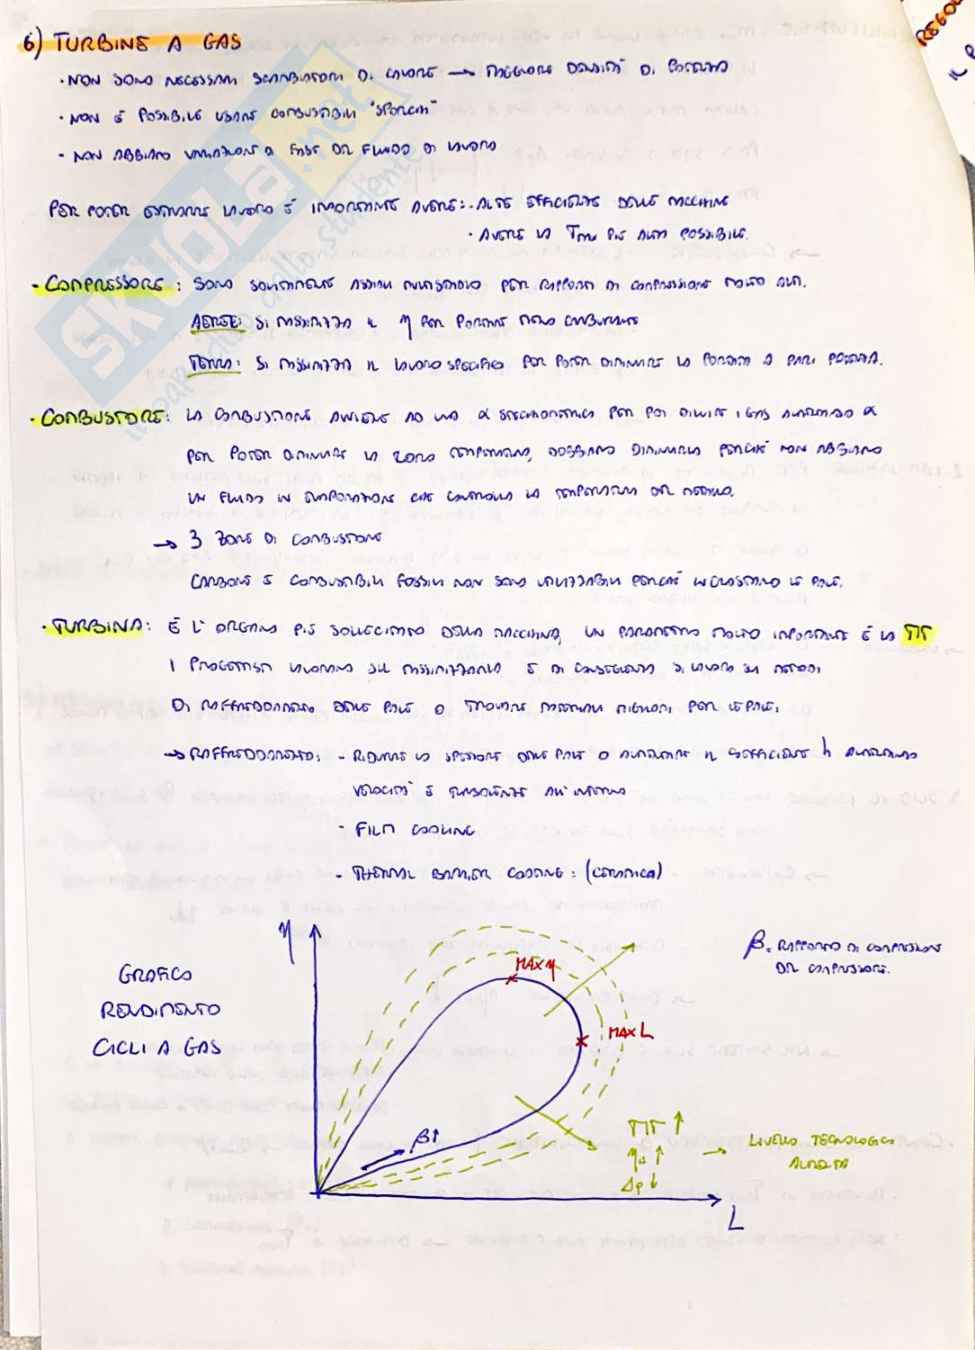 6) TURBINE A GAS
· NON SONO NECESSARI SCAMBIATORI DI CALORE → MAGGIORE DENSITÀ DI POTENZA
· NON È POSSIBILE USARE COMBUSTIBILI "SPORCHI"
· NON ABBIAMO VARIAZIONI DI FASE DEL FLUIDO DI LAVORO
PER POTER ESTRARRE LAVORO È IMPORTANTE AVERE: · ALTE EFFICIENZE DELLE MACCHINE
· AVERE LA TMAX PIÙ ALTA POSSIBILE.
· COMPRESSORE: SONO SOLITAMENTE ASSIALI MULTISTADIO PER RAPPORTI DI COMPRESSIONE MOLTO ALTI.
AEREE: SI MASSIMIZZA IL η PER PORTARE MENO CARBURANTE
TERRA: SI MASSIMIZZA IL LAVORO SPECIFICO PER POTER DIMINUIRE LA PORTATA A PARI POTENZA.
· COMBUSTORE: LA COMBUSTIONE AVVIENE AD UNA α STECHIOMETRICA PER POI DILUIRE I GAS AUMENTANDO α
PER POTER DIMINUIRE LA LORO TEMPERATURA, DOBBIAMO DIMINUIRLA PERCHÉ NON ABBIAMO
UN FLUIDO IN EVAPORAZIONE CHE CONTROLLA LA TEMPERATURA DEL METALLO.
→ 3 ZONE DI COMBUSTIONE
CARBONE E COMBUSTIBILI FOSSILI NON SONO UTILIZZABILI PERCHÉ INCROSTANO LE PALE.
· TURBINA: È L'ORGANO PIÙ SOLLECITATO DELLA MACCHINA, UN PARAMETRO MOLTO IMPORTANTE È LA TIT
I PROGETTISTI LAVORANO SUL MASSIMIZZARLA E DI CONSEGUENZA SI LAVORA SU METODI
DI RAFFREDDAMENTO DELLE PALE O TROVARE MATERIALI MIGLIORI PER LE PALE.
→ RAFFREDDAMENTO: - RIDURRE LO SPESSORE DELLE PALE O AUMENTARE IL COEFFICIENTE h AUMENTANDO
VELOCITÀ E TURBOLENZE ALL'INTERNO
- FILM COOLING
- THERMAL BARRIER COATING: (CERAMICA)
η
β = RAPPORTO DI COMPRESSIONE
DEL COMPRESSORE.
MAX η
GRAFICO
RENDIMENTO
CICLI A GAS
MAX L
β↑
TIT ↑
↑
Δp ↓
→ LIVELLO TECNOLOGICO
AUMENTA
L
SKUOLA.net